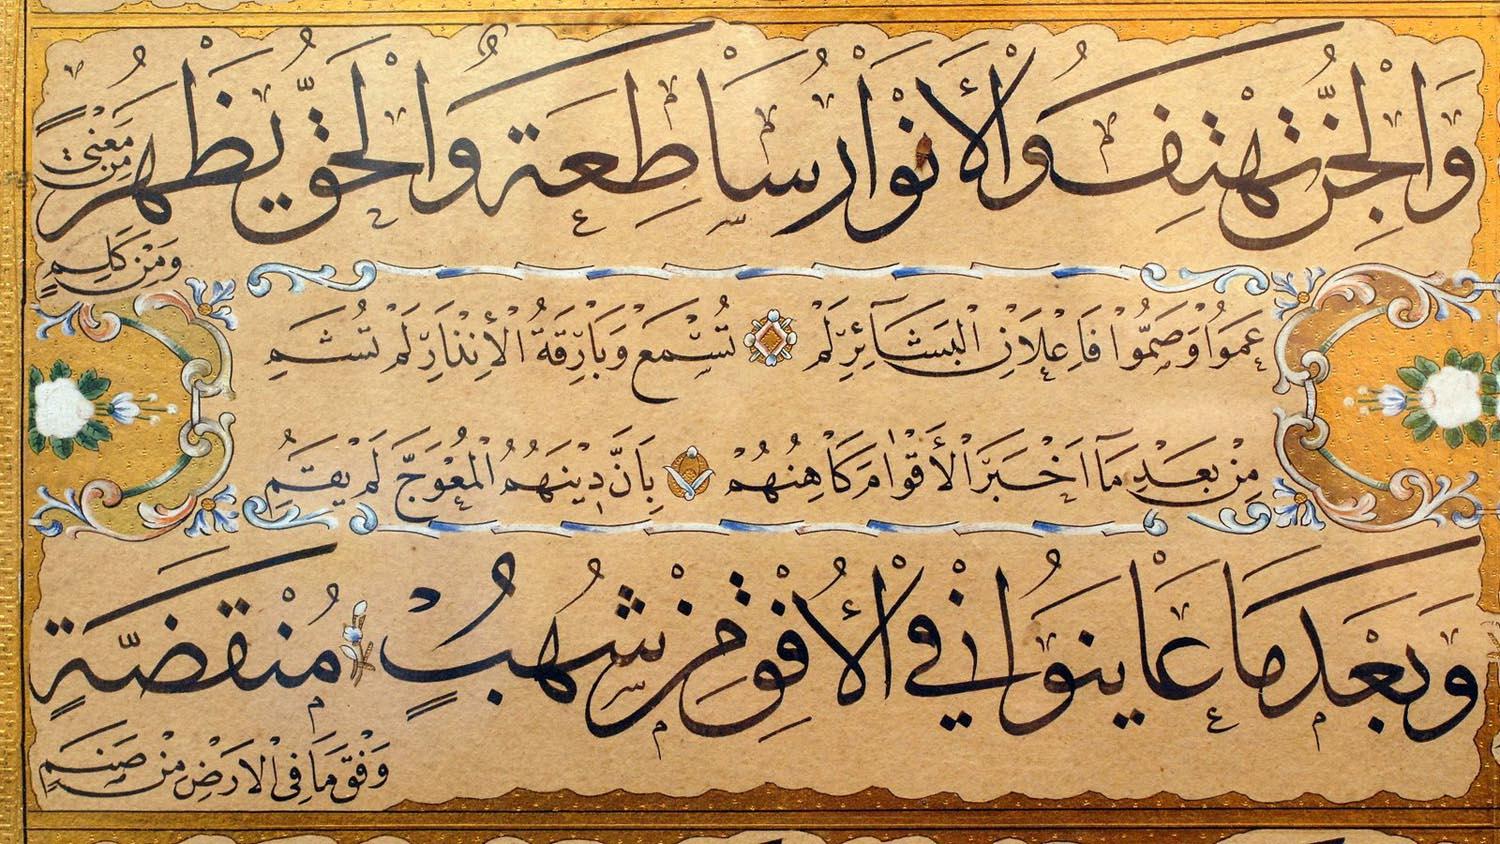 وَالْجِنُّ تَهْتِفُ وَالْأَنْوَارُ سَاطِعَةٌ وَالْحَقُّ يَظْهَرُ
مِنْ مَعْنًى
وَمِنْ كَلِمٍ
عَمُوا وَصَمُّوا فَإِعْلَانُ الْبَشَائِرِ لَمْ تُسْمَعْ وَبَارِقَةُ الْإِنْذَارِ لَمْ تُشَمِ
مِنْ بَعْدِ مَا أَخْبَرَ الْأَقْوَامَ كَاهِنُهُمْ بِأَنَّ دِينَهُمُ الْمُعْوَجَّ لَمْ يَقُمِ
وَبَعْدَ مَا عَايَنُوا فِي الْأُفْقِ مِنْ شُهُبٍ مُنْقَضَّةٍ
وَفْقَ مَا فِي الْأَرْضِ مِنْ صَنَمٍ